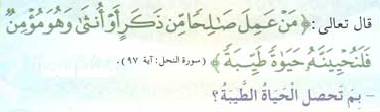 قال تعالى: ﴿ مَنْ عَمِلَ صَـٰلِحًا مِّن ذَكَرٍ أَوْ أُنثَىٰ وَهُوَ مُؤْمِنٌ
فَلَنُحْيِيَنَّهُۥ حَيَوٰةً طَيِّبَةً ﴾ (سورة النحل: آية ٩٧).
- بِمَ تَحْصل الْحَيَاةُ الطَّيِّبَةُ؟